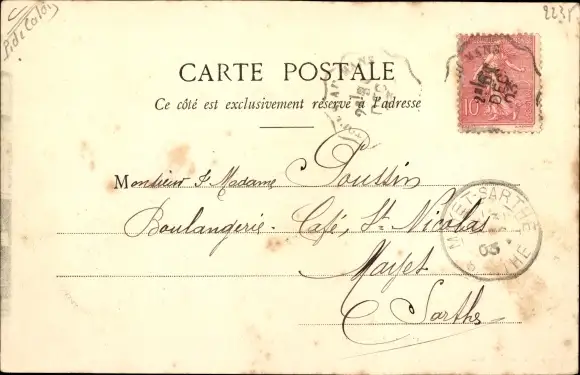 2235
CARTE POSTALE
Ce côté est exclusivement réservé à l'adresse
MANS
10
DEC
03
Monsieur & Madame Poussin
Boulangerie - Café, St Nicolas
MAYET-SARTHE
03
Mayet
Sarthe